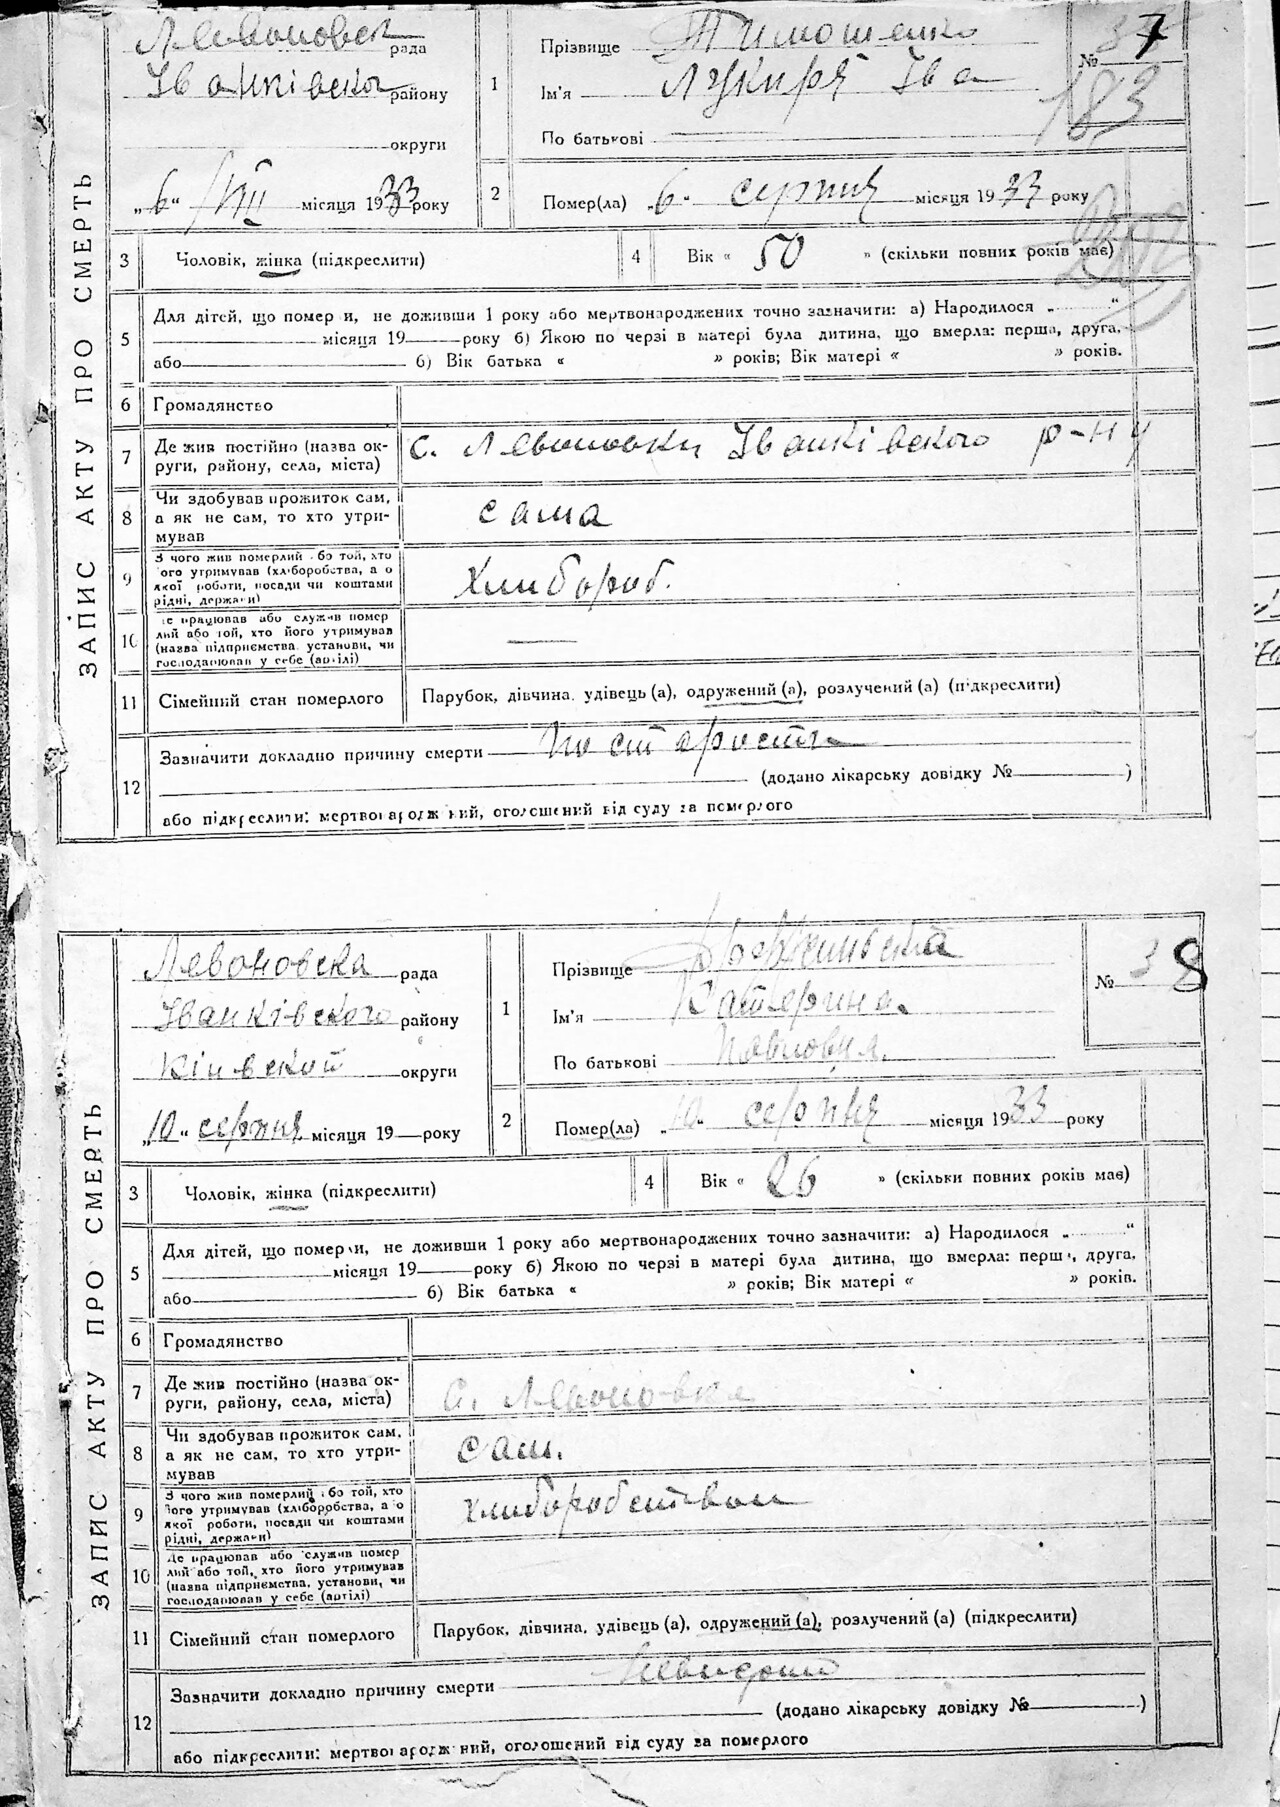 ЗАПИС АКТУ ПРО СМЕРТЬ
Левоновск рада
Іванківского району
округи
„6“ VIII місяця 1933 року
1 Прізвище Тимошенко
Ім'я Лукиря Іва
По батькові
№ 7
183
2 Помер(ла) „6“ серпня місяця 1933 року
3 Чоловік, жінка (підкреслити)
4 Вік « 50 » (скільки повних років має)
5 Для дітей, що помер и, не доживши 1 року або мертвонароджених точно зазначити: а) Народилося „ “
місяця 19 року б) Якою по черзі в матері була дитина, що вмерла: перша, друга,
або б) Вік батька « » років; Вік матері « » років.
6 Громадянство
7 Де жив постійно (назва ок-
руги, району, села, міста) с. Левоновки Іванківского р-ну
8 Чи здобував прожиток сам,
а як не сам, то хто утри-
мував сама
9 З чого жив померлий бо той, хто
ого утримував (хліборобства, а о
якої роботи, посади чи коштами
рідні, держави) Хлибороб.
10 е працював або служив помер
лий або той, хто його утримував
(назва підприємства, установи, чи
господарював у себе (артілі) —
11 Сімейний стан померлого Парубок, дівчина, удівець (а), одружений (а), розлучений (а) (підкреслити)
12 Зазначити докладно причину смерти По старости
(додано лікарську довідку № )
або підкреслити: мертвонароджений, оголошений від суду за померлого
ЗАПИС АКТУ ПРО СМЕРТЬ
Левоновска рада
Іванківского району
Кінвской округи
„10“ серпня місяця 19 — року
1 Прізвище
Ім'я Катерина.
По батькові Павловна.
№ 38
2 Помер(ла) „10“ серпня місяця 1933 року
3 Чоловік, жінка (підкреслити)
4 Вік « 26 » (скільки повних років має)
5 Для дітей, що померли, не доживши 1 року або мертвонароджених точно зазначити: а) Народилося „ “
місяця 19 року б) Якою по черзі в матері була дитина, що вмерла: перша, друга,
або б) Вік батька « » років; Вік матері « » років.
6 Громадянство
7 Де жив постійно (назва ок-
руги, району, села, міста) С. Левоновка
8 Чи здобував прожиток сам,
а як не сам, то хто утри-
мував сам.
9 З чого жив померлий бо той, хто
його утримував (хліборобства, а о
якої роботи, посади чи коштами
рідні, держави) хлиборобством
10 Де працював або служив помер
лий або той, хто його утримував
(назва підприємства, установи, чи
господарював у себе (артілі)
11 Сімейний стан померлого Парубок, дівчина, удівець (а), одружений (а), розлучений (а) (підкреслити)
12 Зазначити докладно причину смерти
(додано лікарську довідку № )
або підкреслити: мертвонароджений, оголошений від суду за померлого